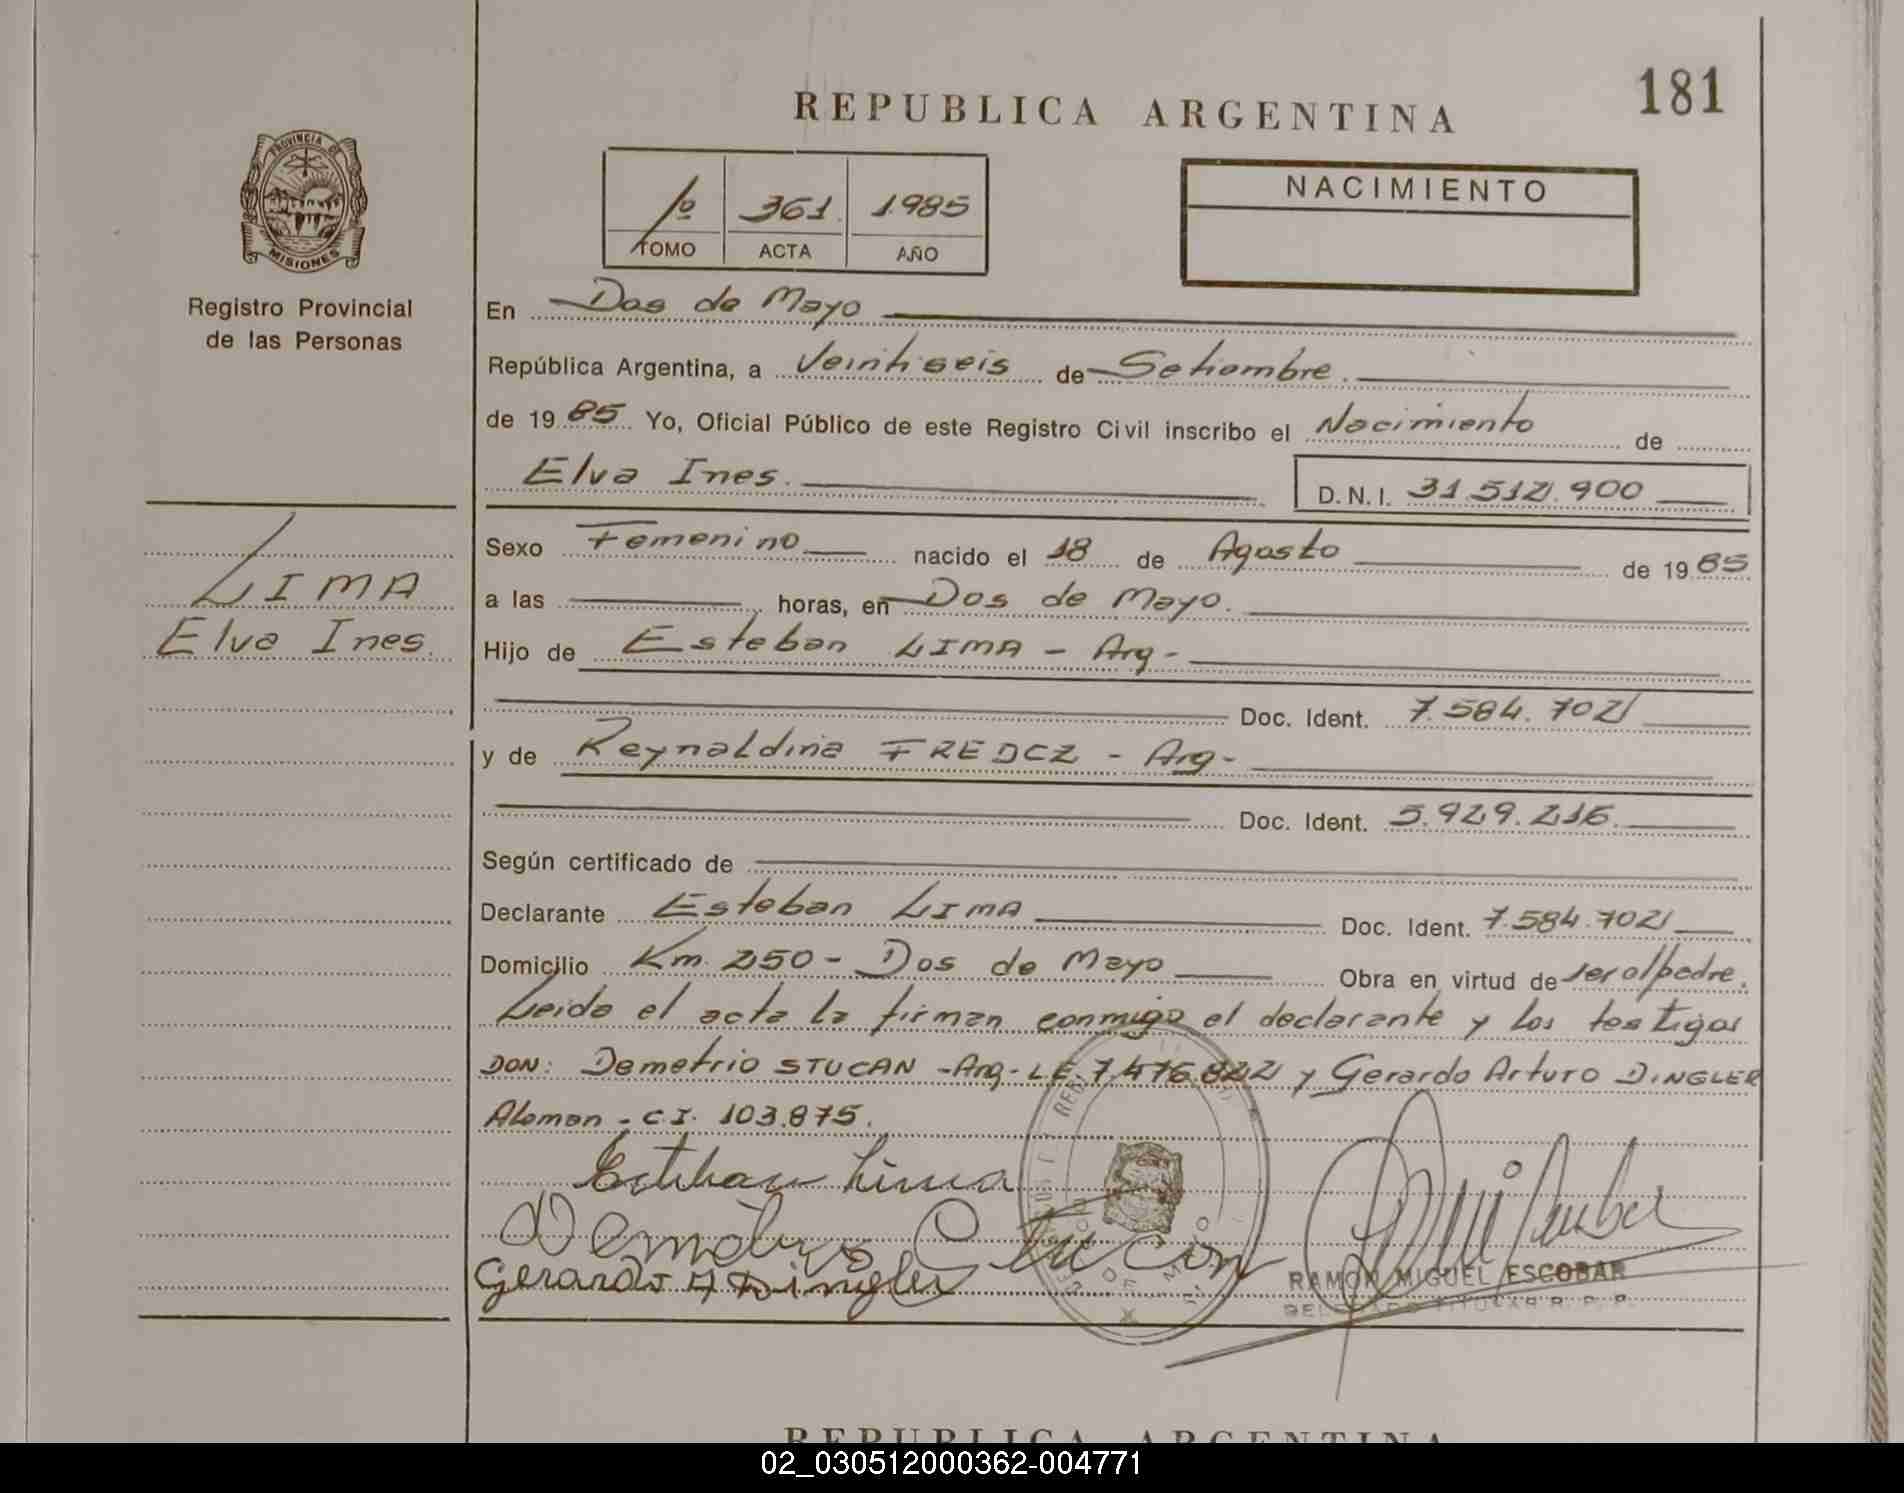 181
REPUBLICA ARGENTINA
PROVINCIA DE
MISIONES
Registro Provincial
de las Personas
1º 361 1985
TOMO ACTA AÑO
NACIMIENTO
En Dos de Mayo
República Argentina, a Veintiseis de Setiembre.
de 19 85 Yo, Oficial Público de este Registro Civil inscribo el Nacimiento de
Elva Ines. D.N.I. 31.512.900
LIMA
Elva Ines.
Sexo Femenino nacido el 18 de Agosto de 19 85
a las horas, en Dos de Mayo.
Hijo de Esteban LIMA - Arg-
Doc. Ident. 7.584.702
y de Reynaldina - Arg-
Doc. Ident. 5.929.216.
Según certificado de
Declarante Esteban LIMA Doc. Ident. 7.584.702
Domicilio Km. 250 - Dos de Mayo Obra en virtud de ser el padre.
Leida el acta la firman conmigo el declarante y los testigos
DON: Demetrio STUCAN -Arg- L.E. 7.476.822 y Gerardo Arturo DINGLER
Aleman - C.I. 103.875.
Esteban Lima
Gerardo A Dingler
RAMON MIGUEL ESCOBAR
DELEGADO TITULAR R. P. P.
REPUBLICA ARGENTINA
02_030512000362-004771